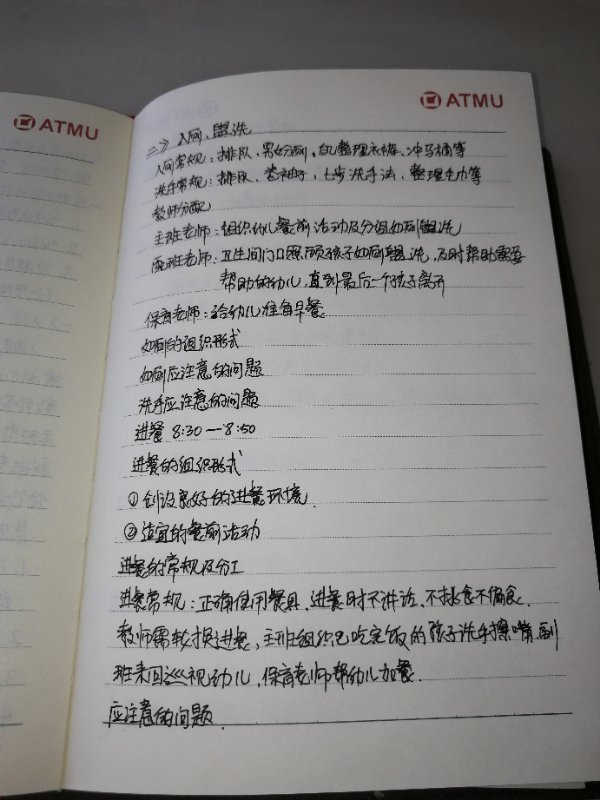 ATMU
ATMU
二、入厕、盥洗
入厕常规：排队、男女分厕、自己整理衣裤、冲马桶等
洗手常规：排队、卷袖子、七步洗手法、整理毛巾等
教师分配
主班老师：组织幼儿餐前活动及分组如厕盥洗
配班老师：卫生间门口照顾孩子如厕盥洗，及时帮助需要
帮助的幼儿，直到最后一个孩子离开
保育老师：给幼儿准备早餐
如厕的组织形式
如厕应注意的问题
洗手应注意的问题
进餐 8:30—8:50
进餐的组织形式
①创设良好的进餐环境
②适宜的餐前活动
进餐的常规及分工
进餐常规：正确使用餐具、进餐时不讲话、不挑食不偏食.
教师需轮换进餐，主班组织已吃完饭的孩子洗手擦嘴，副
班来回巡视幼儿，保育老师帮幼儿加餐.
应注意的问题